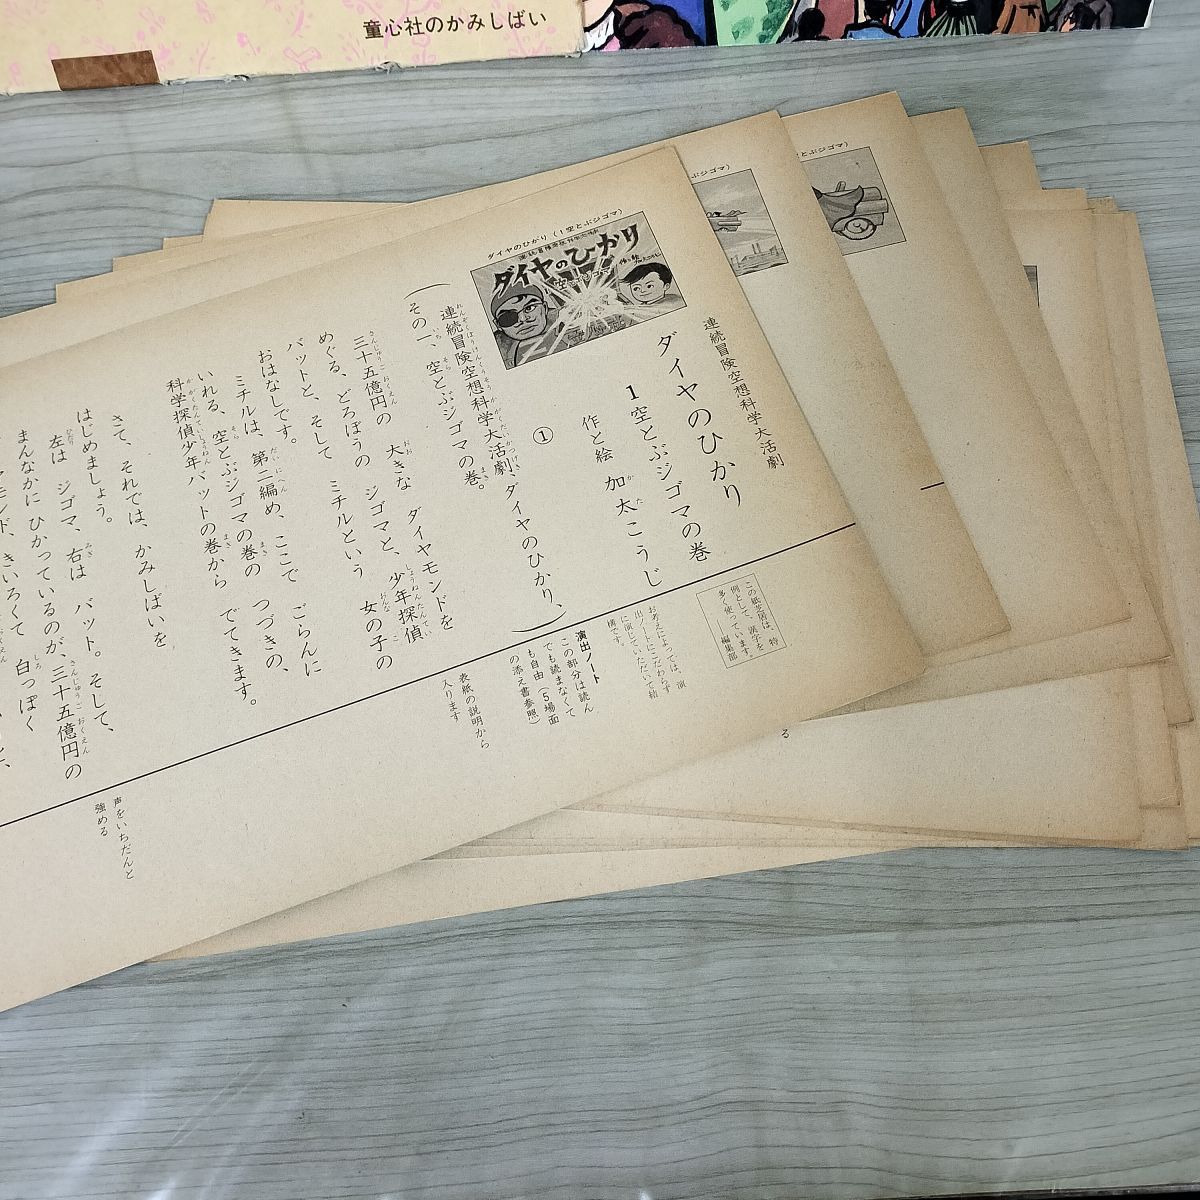 童心社のかみしばい
ダイヤのひかり（1空とぶジゴマ）
ダイヤのひかり
空とぶジゴマ
連続冒険空想科学大活劇
ダイヤのひかり
1空とぶジゴマの巻
作と絵 加太こうじ
①
（連続冒険空想科学大活劇、ダイヤのひかり、
その一、空とぶジゴマの巻。）
三十五億円の 大きな ダイヤモンドを
めぐる、どろぼうの ジゴマと、少年探偵
バットと、そして ミチルという 女の子の
おはなしです。
ミチルは、第二編め、ここで ごらんに
いれる、空とぶジゴマの巻の つづきの、
科学探偵少年バットの巻から でてきます。
さて、それでは、かみしばいを
はじめましょう。
左は ジゴマ、右は バット。そして、
まんなかに ひかっているのが、三十五億円の
モンド、きいろくて 白っぽく
この紙芝居は、特
例として、漢字を
多く使っています。
—編集部
お考えによっては、演
出ノートにこだわらず
に演じていただいて結
構です。
演出ノート
この部分は読ん
でも読まなくて
も自由（5場面
の添え書参照）
表紙の説明から
入ります
声をいちだんと
強める
ぶジゴマ）
とぶジゴマ）
る